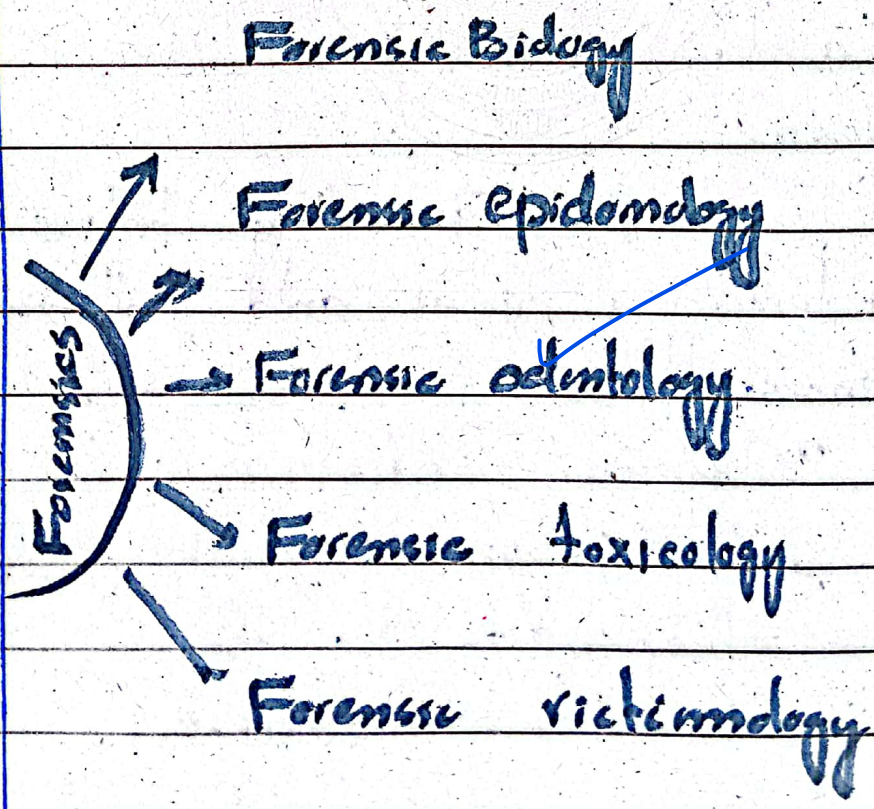 Forensic Biology
Forensic epidomology
Forensic odontology
Forensics
Forensic toxicology
Forensic victimology